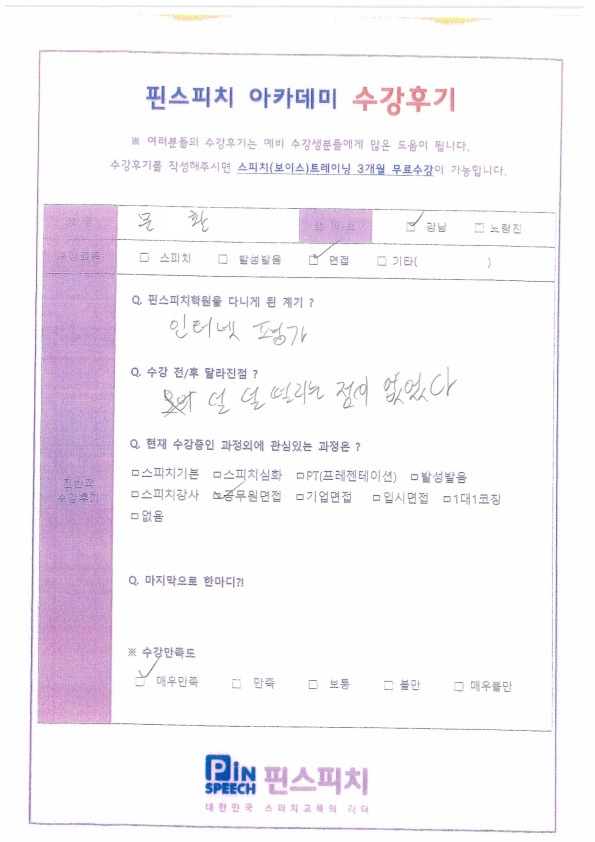 핀스피치 아카데미 수강후기
※ 여러분들의 수강후기는 예비 수강생분들에게 많은 도움이 됩니다.
수강후기를 작성해주시면 스피치(보이스)트레이닝 3개월 무료수강이 가능합니다.
성 명 문 환 캠퍼스 ☑ 강남 □ 노량진
수강과목 □ 스피치 □ 발성발음 ☑ 면접 □ 기타( )
Q. 핀스피치학원을 다니게 된 계기 ?
인터넷 평가
Q. 수강 전/후 달라진점 ?
덜 덜 떨리는 점이 없었다
Q. 현재 수강중인 과정외에 관심있는 과정은 ?
전반적
수강후기
□스피치기본 □스피치심화 □PT(프레젠테이션) □발성발음
□스피치강사 ☑공무원면접 □기업면접 □입시면접 □1대1코칭
□없음
Q. 마지막으로 한마디?!
※ 수강만족도
☑ 매우만족 □ 만족 □ 보통 □ 불만 □ 매우불만
PiN SPEECH 핀스피치
대한민국 스피치교육의 리더